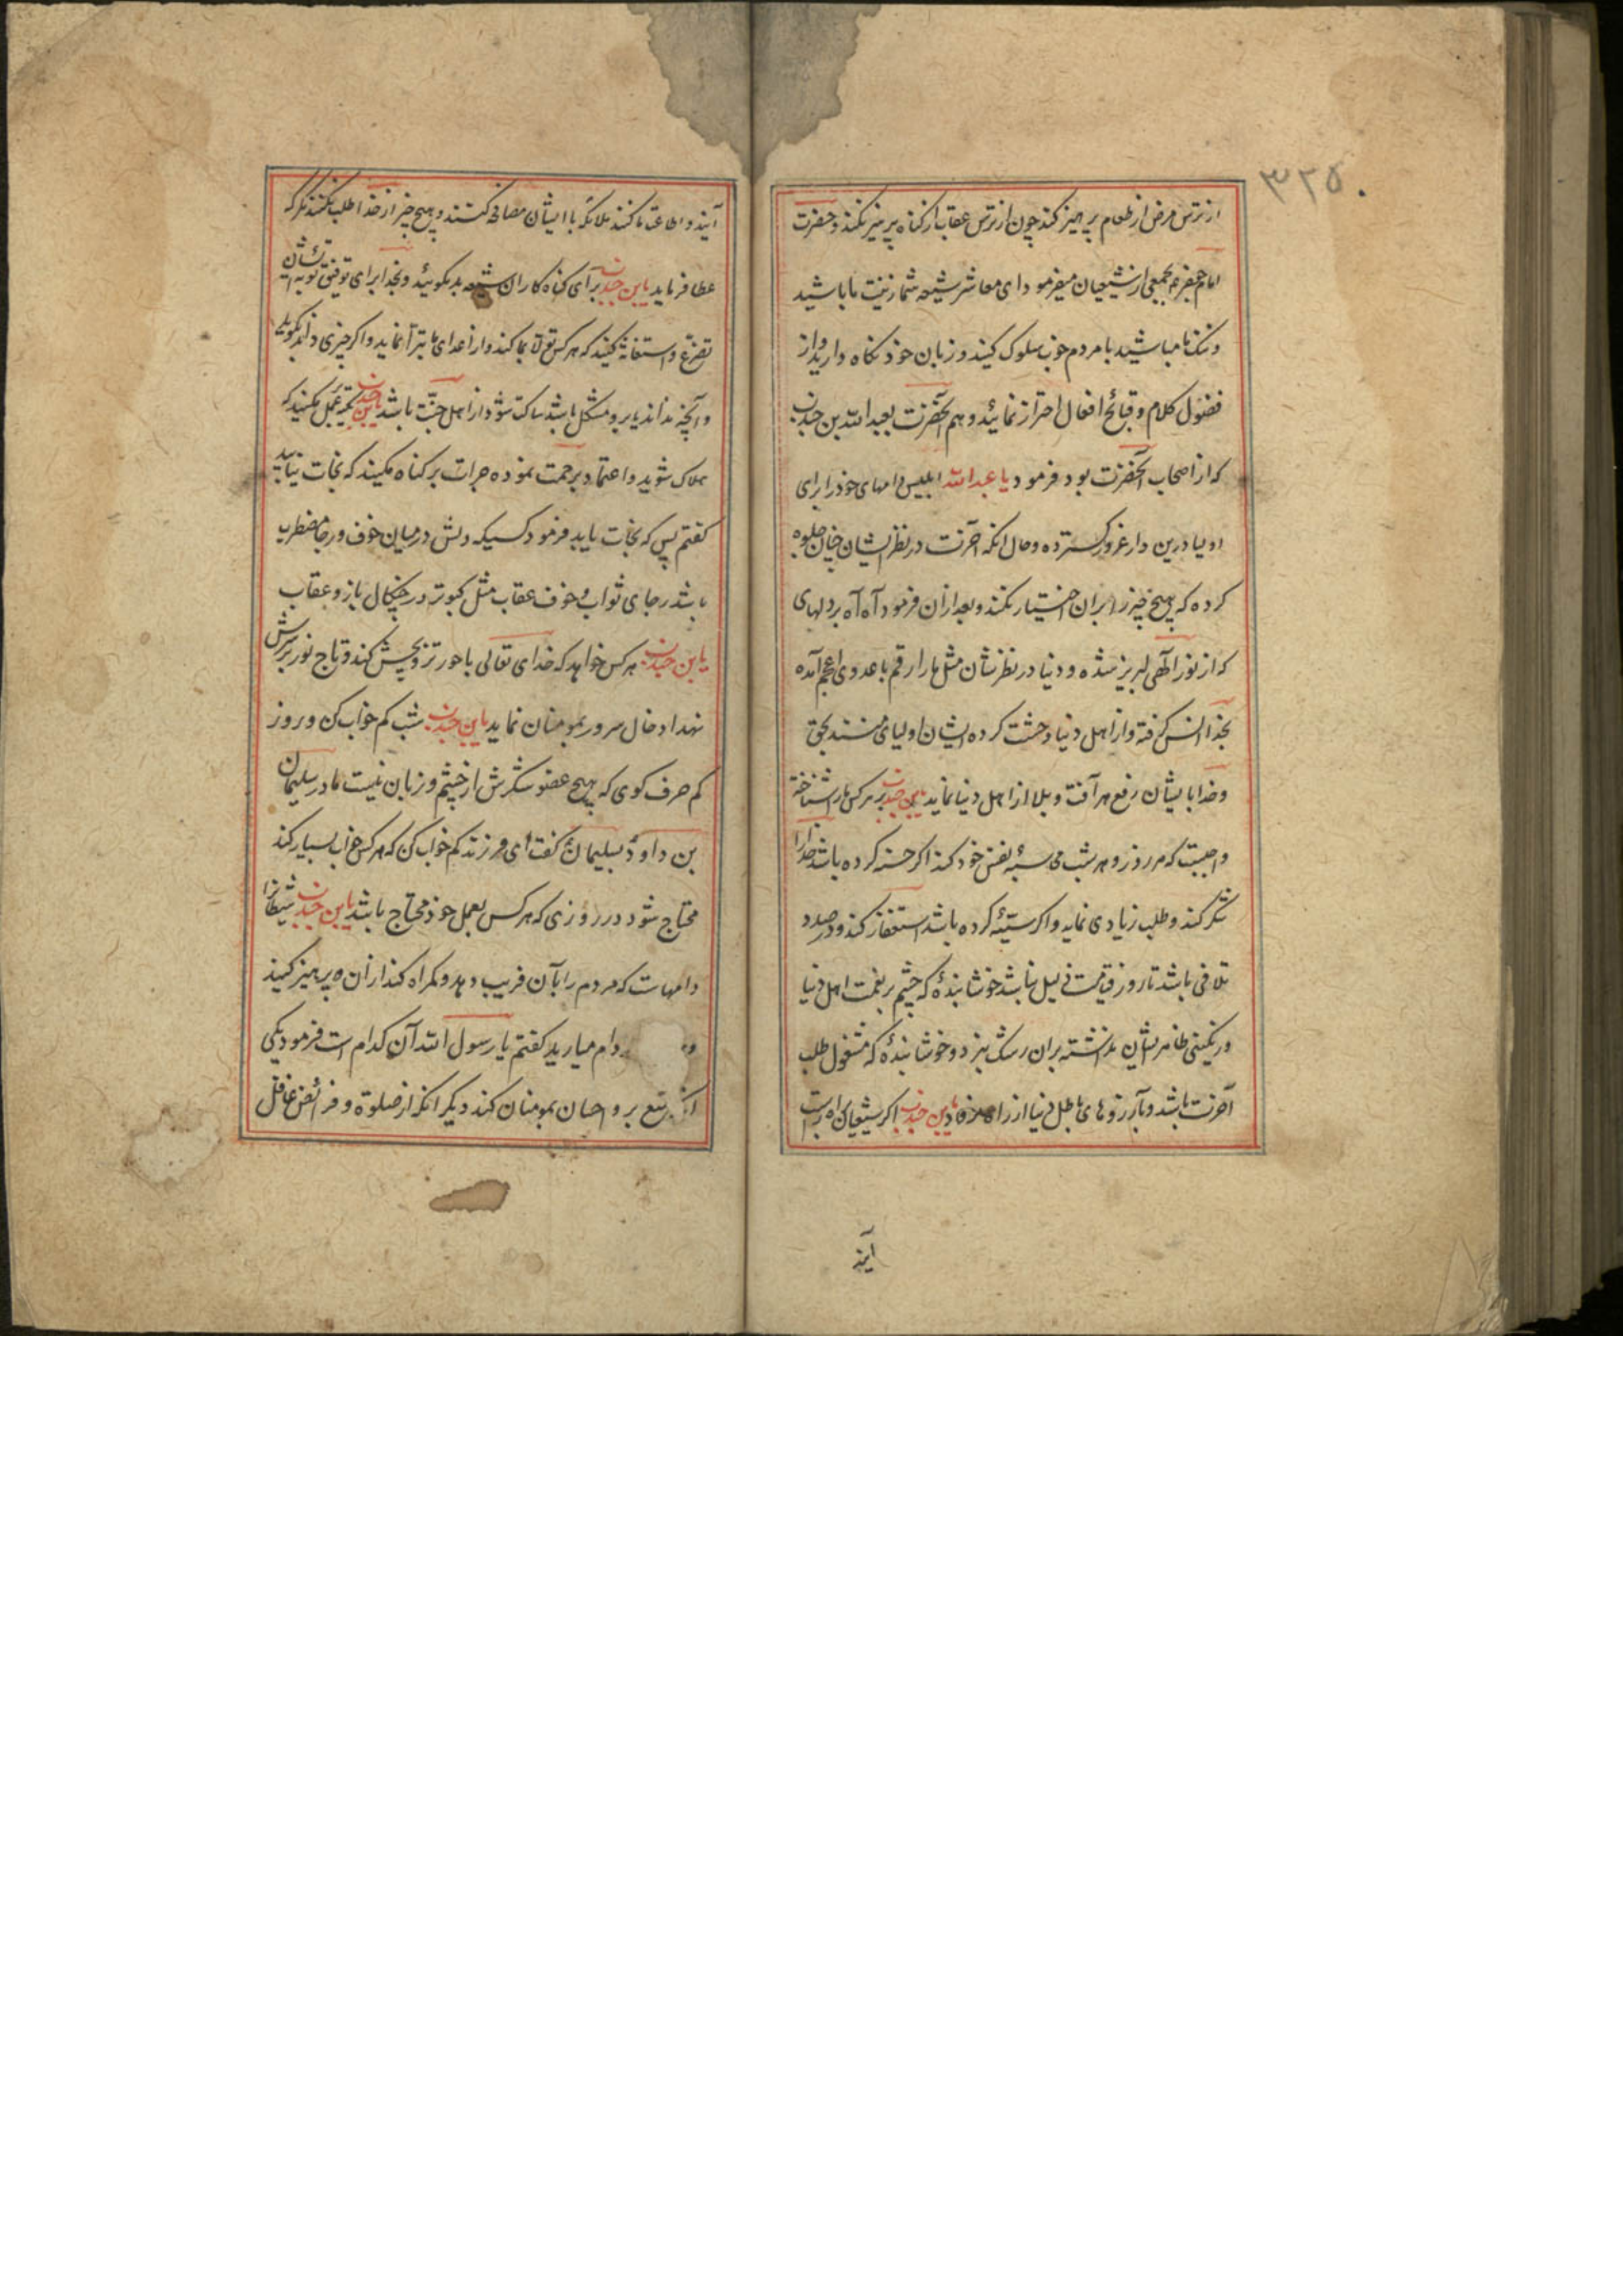 ۳۲۵۰
از ترس مرض از طعام پرهیز کند چون از ترس عقاب از کناه پرهیز نکند و حضرت
امام جعفر ع بجمعی از شیعیان میفرمود ای معاشر شیعه شما زینت ما باشید
و ننک ما مباشید با مردم خوب سلوک کنید و زبان خود نکاه دارید و از
فضول کلام و قبائح افعال احتراز نمائید و هم آنحضرت بعبدالله بن جندب
که از اصحاب آنحضرت بود فرمود یا عبدالله ابلیس دامهای خود را برای
اولیا درین دار غرور کسترده و حال انکه آخرت در نظر ایشان چنان جلوه
کرده که هیچ چیز را بران اختیار نکنند و بعد ازان فرمود آه آه بر دلهای
که از نور آلهی لبریز شده و دنیا در نظرشان مثل مار ارقم با عدوی اعجم آمده
بخدا انس کرفته و از اهل دنیا وحشت کرده ایشان اولیای منند بحق
و خدا بایشان رفع هر آفت و بلا از اهل دنیا نماید یابن جندب بر هر کس ما را شناخته
واجبست که هر روز و هر شب محاسبۀ نفس خود کند اکر حسنه کرده باشد خدا را
شکر کند و طلب زیادی نماید و اکر سیّئه کرده باشد استغفار کند و در صدد
تلافی باشد تا روز قیامت ذلیل نباشد خوشا بندۀ که چشم بر نعمت اهل دنیا
و رنکینی ظاهر ایشان نداشته بران رشک نبرد و خوشا بندۀ که مشغول طلب
آخرت باشد و بآرزوهای باطل دنیا از راه نرفتاد یابن جندب اکر شیعیان براه راست
آیند
آیند و اطاعت ما کنند ملائکه با ایشان مصافحه کنند و هیچ چیز از خدا طلب نکنند مکر که
عطا فرماید یابن جندب برای کناه کاران شیعه بد مکوئید و بخدا برای توفیق توبه ایشان
تضرّع و استغاثه کنید که هر کس تولّا بما کند و از اعدای ما تبرّا نماید و اکر چیزی داند بکوید
و آنچه نداند یا برو مشکل باشد ساکت شود از اهل جنّت باشد یابن جندب تکیه بعمل مکنید که
هلاک شوید و اعتماد برحمت نموده جرات بر کناه مکنید که نجات نیابید
کفتم پس که نجات یابد فرمود کسیکه دلش در میان خوف و رجا مضطرب
باشد رجای ثواب و خوف عقاب مثل کبوتر در چنکال باز و عقاب
یابن جندب هر کس خواهد که خدای تعالی با حور تزویجش کند و تاج نور بر سرش
نهد ادخال سرور بمومنان نماید یابن جندب شب کم خواب کن و روز
کم حرف کوی که هیچ عضو شکرش از چشم و زبان نیست مادر سلیمان
بن داود بسلیمان کفت ای فرزند کم خواب کن که هر کس خواب بسیار کند
محتاج شود در روزی که هر کس بعمل خود محتاج باشد یابن جندب شیطانرا
دامهاست که مردم را بآن فریب دهد و کمراه کند ازان پرهیز کنید
دام میارید کفتم یا رسول الله آن کدام است فرمود یکی
بر و احسان بمومنان کند دیکر انکه از صلوة و فرائض غافل